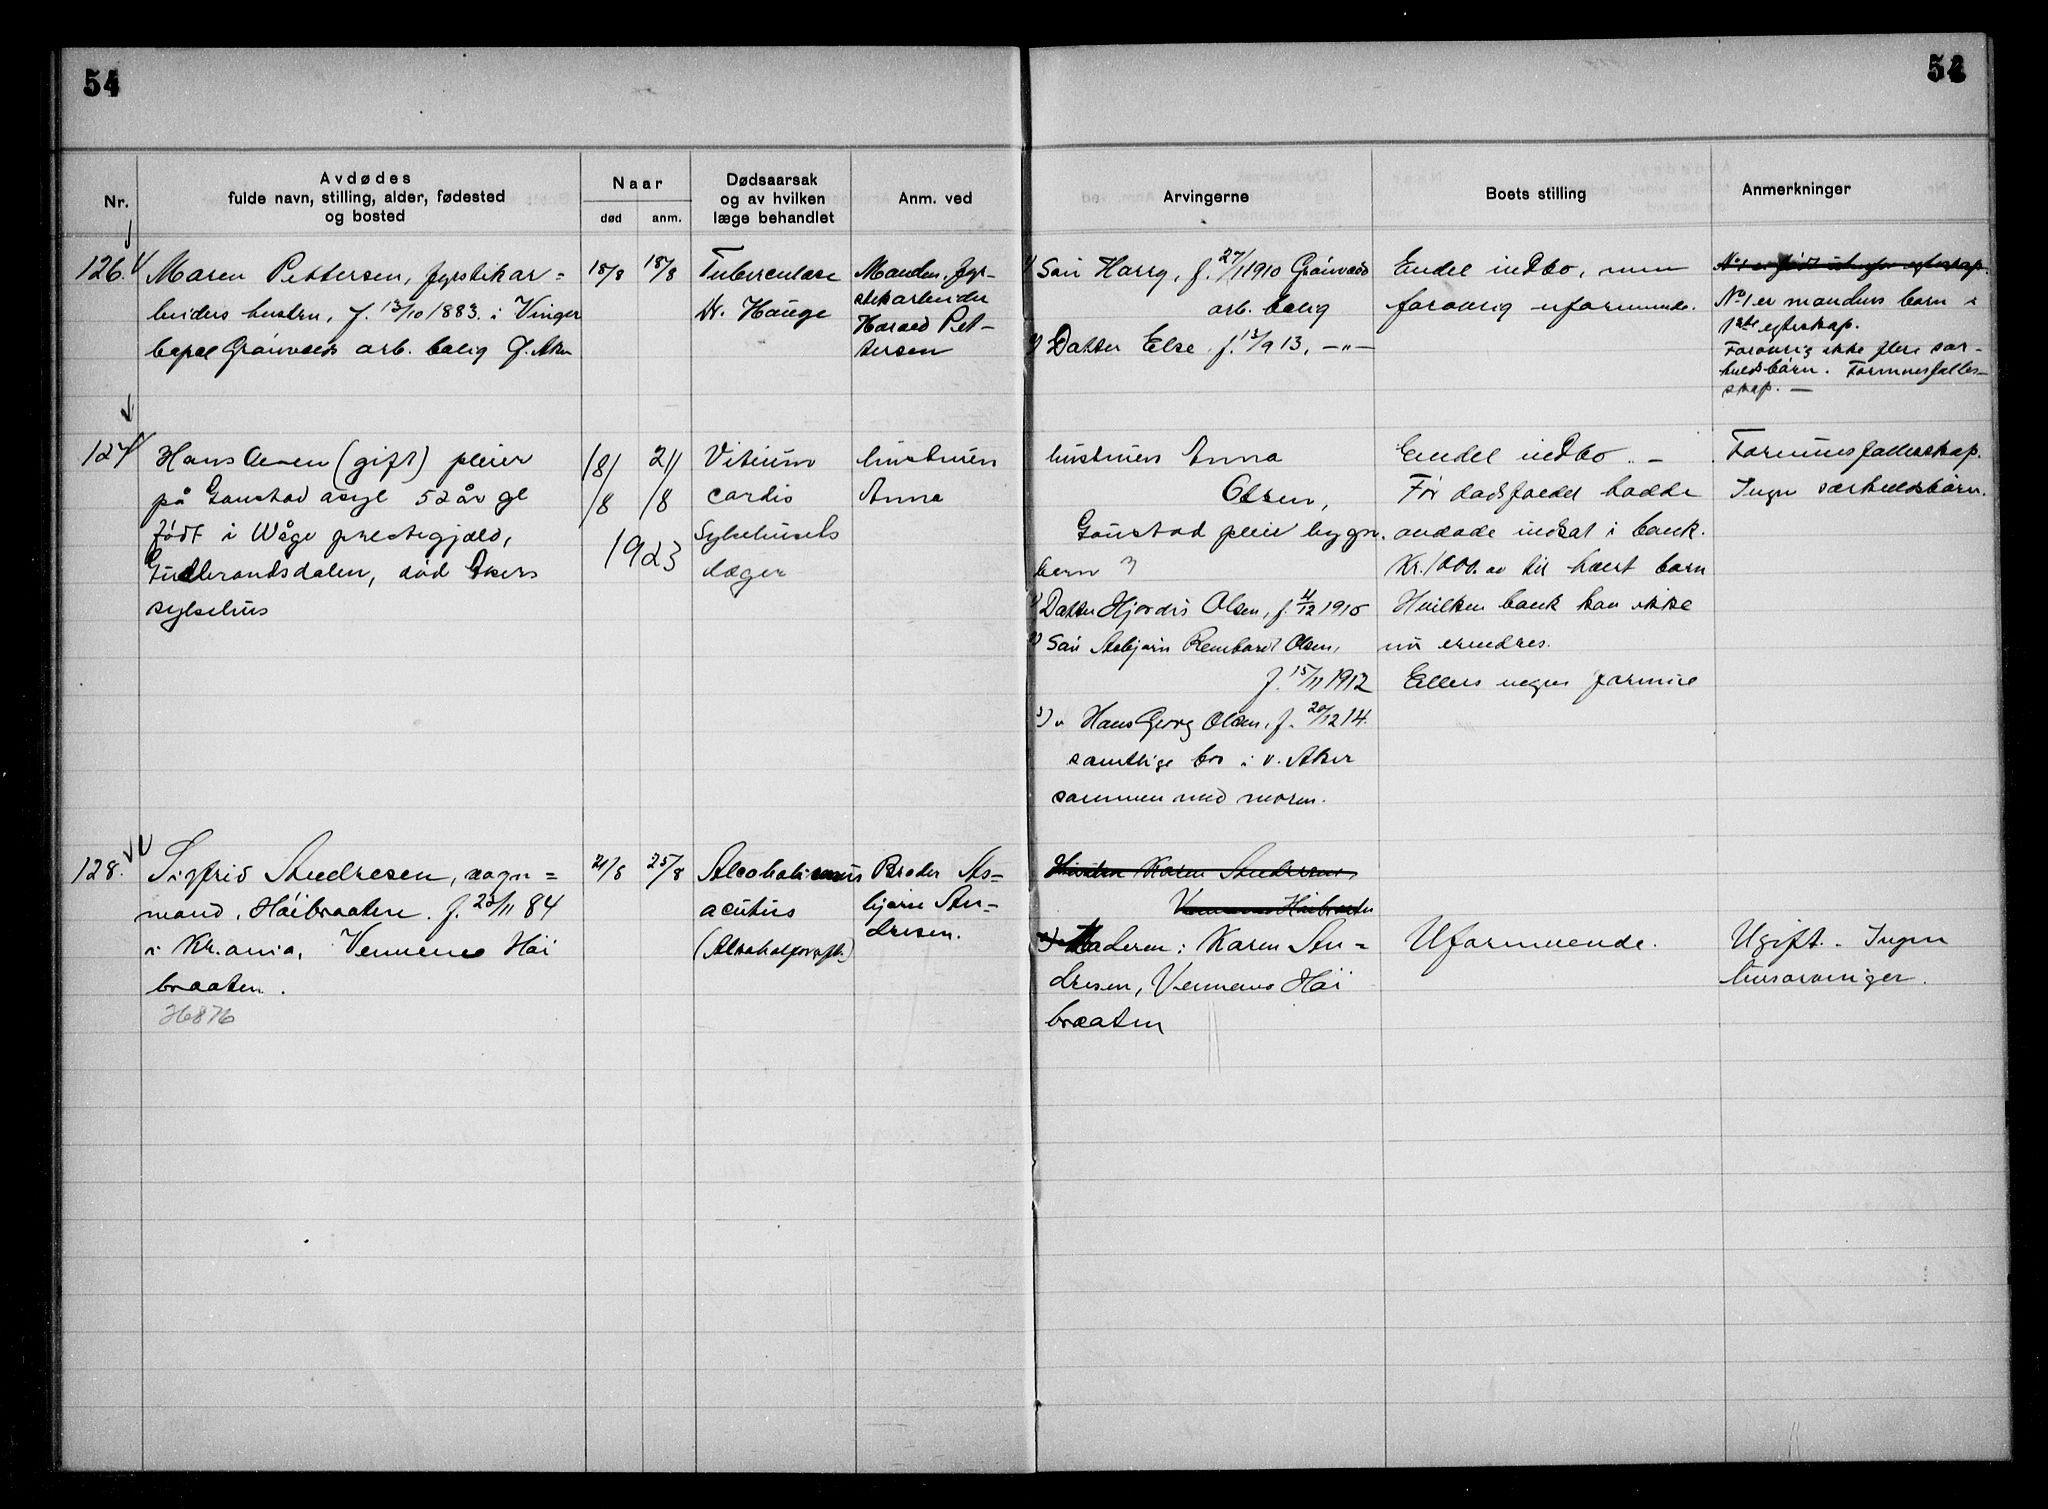 54
54
Nr.
Avdødes
fulde navn, stilling, alder, fødested
og bosted
Naar
død
anm.
Dødsaarsak
og av hvilken
læge behandlet
Anm. ved
Arvingerne
Boets stilling
Anmerkninger
126.
Maren Pettersen, fyrstikar=
beiders hustru, f. 13/10 1883 i Vinger
bopæl Grönvolds arb. bolig Ø. Aker
18/8
18/8
Tuberculose
Dr. Hauge
Manden, fyr-
stikarbeider
Harald Pet-
tersen
1) Sön Harry, f. 27/1 1910 Grönvold
arb. bolig
2) Datter Else f. 13/9 13, -"-
Endel indbo, men
forøvrig uformuende.
No 1 er født utenfor egteskap.
No 1 er mandens barn i
1ste egteskap.
Forøvrig ikke flere sær-
kuldsbörn. Formuesfælles-
skap. —
127
Hans Olsen (gift) pleier
på Gaustad asyl 52 år gl
født i Wåge prestegjæld,
Gudbrandsdalen, død Akers
sykehus
18/8
21/8
1923
Vitium
cordis
Sykehusets
læger
hustruen
Anna
hustruen Anna
Olsen,
Gaustad pleier bygn.
barn 3
1) Datter Hjørdis Olsen, f. 4/12 1910
2) Sön Asbjørn Rembardt Olsen,
f. 15/11 1912
3) " Hans Georg Olsen, f. 20/12 14.
samtlige bor i v. Aker
sammen med moren.
Endel indbo. —
Før dødsfaldet hadde
avdøde indsat i bank.
Kr. 1000. av til hvert barn
Hvilken bank kan ikke
nu erindres.
Ellers ingen formue
Formuesfællesskap.
Ingen særkuldsbörn.
128.
Sigfrid Andresen, vogn=
mand, Höibraaten. f. 23/11 84
i Kr.ania, Vennemo Höi
braaten.
H 876
21/8
25/8
Alcoholismus
acutus
(Alkoholforgift.)
Broder As-
bjørn An-
dresen.
Hustru Karen Andresen,
Vennemo Höibraaten
1) Moderen: Karen An-
dresen, Vennemo Höi
braaten
Uformuende.
Ugift. - Ingen
livsarvinger.